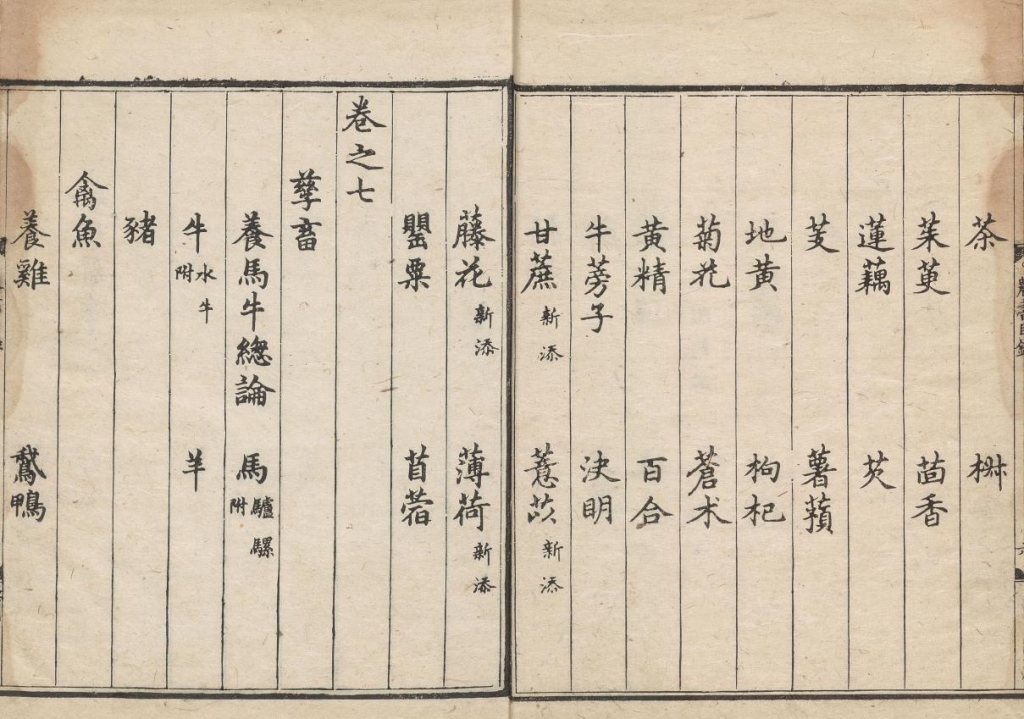 茶 椒
茱萸 茴香
蓮藕 芡
芰 薯蕷
地黃 枸杞
菊花 蒼术
黃精 百合
牛蒡子 決明
甘蔗 新添 薏苡 新添
藤花 新添 薄荷 新添
罌粟 苜蓿
卷之七
孳畜
養馬牛總論 馬 附驢騾
牛 附水牛 羊
豬
禽魚
養雞 鵞鴨